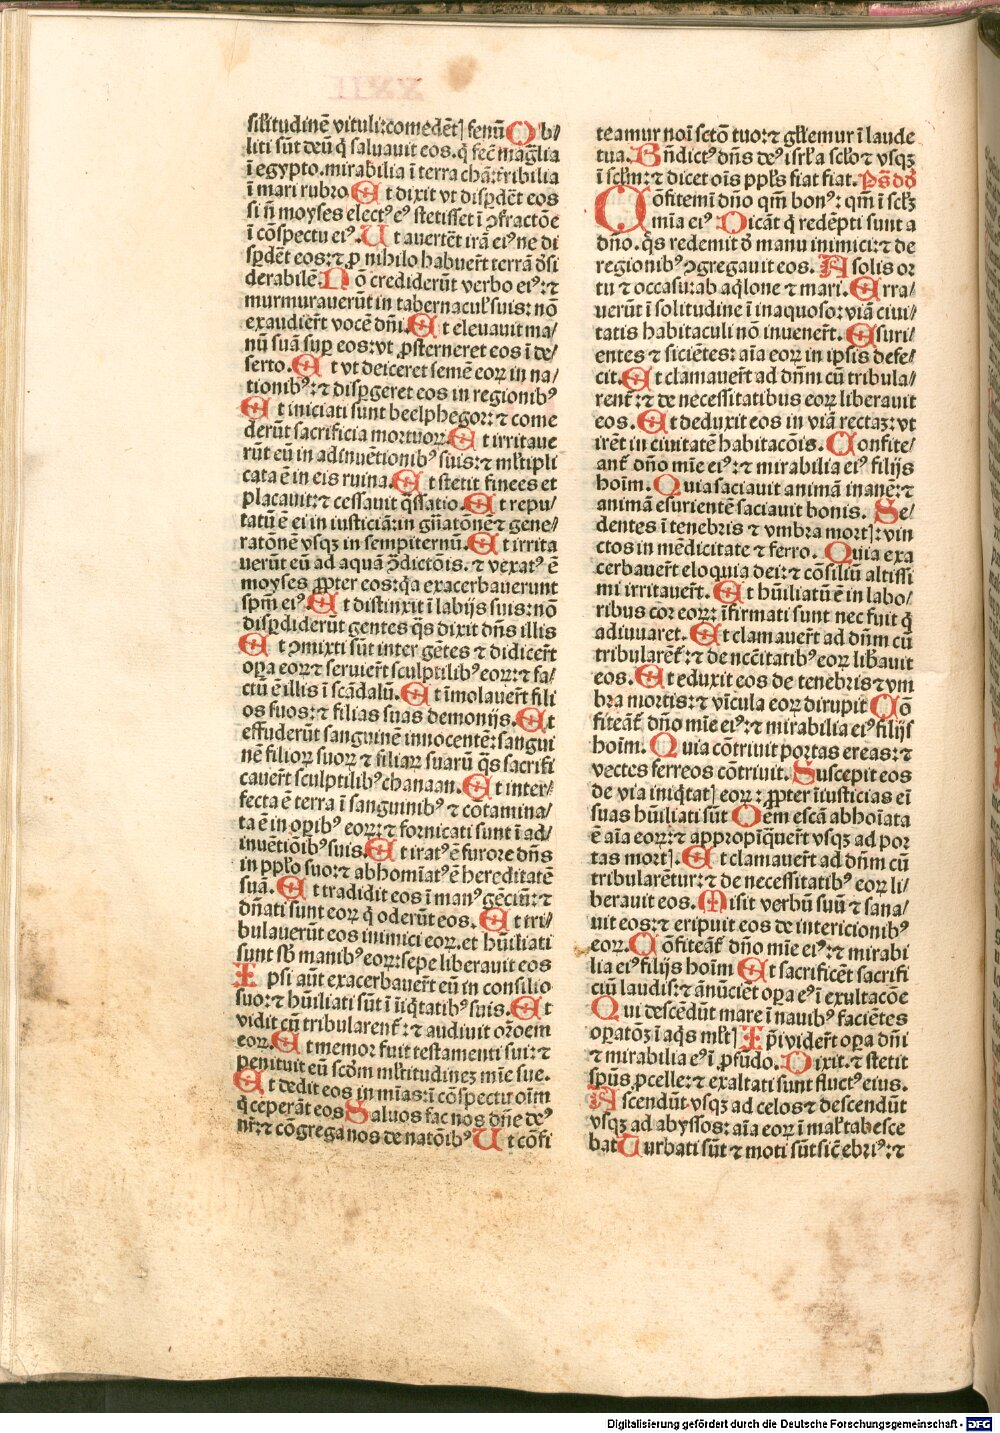 XXII
sil'itudinē vituli:comedēt̄ fenū Ob/
liti sūt deū q̄ saluauit eos.q̄ fec̄ mag̅lia
ī egypto.mirabilia ī terra chā:tribilia
ī mari rubro Et dixit vt disꝑdēt eos
si n̄ moyses elect⁹ e⁹ stetisset ī ꝯfractōe
ī cōspectu ei⁹.Ut auertēt irā ei⁹ ne di
sꝑdēt eos:⁊ ꝓ nihilo habuer̄t terrā d̄si
derabilē.Nō crediderūt verbo ei⁹:⁊
murmurauerūt in tabernacul'suis:nō
exaudier̄t vocē dn̄i.Et eleuauit ma/
nū suā suꝑ eos:vt ꝓsterneret eos ī de/
serto.Et vt deiceret semē eoꝝ in na/
tionib⁹:⁊ disꝑgeret eos in regionib⁹
Et iniciati sunt beelphegor:⁊ come
derūt sacrificia mortuoꝝ.Et irritaue
rūt eū in adinuētionib⁹ suis:⁊ ml'tipli
cata ē in eis ruina.Et stetit finees et
placauit:⁊ cessauit q̄ssatio.Et repu/
tatū ē ei in iusticiā:in gn̄atōnē⁊ gene/
ratōnē vsqꝫ in sempiternū.Et irrita
uerūt eū ad aquā ꝯ̄dictōis.⁊ vexat⁹ ē
moyses ꝓpter eos:q̄a exacerbauerunt
spm̄ ei⁹.Et distinxit ī labijs suis:nō
disꝑdiderūt gentes q̄s dixit dn̄s illis
Et ꝯmixti sūt inter gētes ⁊ didicer̄t
oꝑa eoꝝ⁊ seruier̄t sculptilib⁹ eoꝝ:⁊ fa/
ctū ē illis ī scādalū.Et īmolauer̄t fili
os suos:⁊ filias suas demonijs.Et
effuderūt sanguinē innocentē:sangui
nē filioꝝ suoꝝ ⁊ filiaꝝ suarū q̄s sacrifi
cauer̄t sculptilib⁹ chanaan.Et inter/
fecta ē terra ī sanguinib⁹ ⁊ cōtamina/
ta ē in oꝑib⁹ eoꝝ:⁊ fornicati sunt ī ad/
inuētiōib⁹suis.Et irat⁹ ē furore dn̄s
in ppl'o suo:⁊ abhomiat⁹ ē hereditatē
suā.Et tradidit eos ī man⁹ gēciū:⁊
dn̄ati sunt eoꝝ q̄ oderūt eos.Et tri/
bulauerūt eos inimici eoꝝ.et hūiliati
sunt sb̄ manib⁹ eoꝝ:sepe liberauit eos
Ipsi aūt exacerbauer̄t eū in consilio
suo:⁊ hūiliati sūt ī iiq̄tatib⁹ suis.Et
vidit cū tribularent̄:⁊ audiuit or̄oem
eoꝝ.Et memor fuit testamenti sui:⁊
penituit eū scd̄m ml'titudinez mīe sue.
Et dedit eos in mīas:ī cōspectu oīm
q̄ ceperāt eos Saluos fac nos dn̄e de⁹
nr̄:⁊ cōgrega nos de natōib⁹ Ut cōfi
teamur noī sctō tuo:⁊ gl'iemur ī laude
tua.Bn̄dict⁹ dn̄s de⁹ isrl'a scl'o⁊ vsqꝫ
ī scl'm:⁊ dicet oīs ppl's fiat fiat.Ps̄ dō
Cōfitemī dn̄o qm̄ bon⁹: qm̄ ī scl'ꝫ
mīa ei⁹ Dicāt q̄ redēpti sunt a
dn̄o.q̄s redemit d̄ manu inimici:⁊ de
regionib⁹ ꝯgregauit eos. A solis or
tu ⁊ occasu:ab aq̄lone ⁊ mari.Erra/
uerūt ī solitudine ī inaquoso:viā ciui/
tatis habitaculi nō inuener̄t. Esuri/
entes ⁊ siciētes:aīa eoꝝ in ipsis defe/
cit.Et clamauer̄t ad dn̄m cū tribula/
rent̄:⁊ de necessitatibus eoꝝ liberauit
eos. Et deduxit eos in viā rectaꝫ:vt
irēt in ciuitatē habitacōis. Confite/
ant̄ dn̄o mīe ei⁹:⁊ mirabilia ei⁹ filijs
hoīm. Quia saciauit animā inanē:⁊
animā esurientē saciauit bonis. Se/
dentes ī tenebris ⁊ vmbra mort̄:vin
ctos in mēdicitate ⁊ ferro. Quia exa
cerbauer̄t eloquia dei:⁊ cōsiliū altissi
mi irritauer̄t. Et hūiliatū ē in labo/
ribus cor eoꝝ: īfirmati sunt nec fuit q̄
adiuuaret. Et clamauer̄t ad dn̄m cū
tribularēt̄:⁊ de ncēitatib⁹ eoꝝ lib̄auit
eos. Et eduxit eos de tenebris⁊vm
bra mortis:⁊ vīcula eoꝝ dirupit Cō
fiteāt̄ dn̄o mīe ei⁹:⁊ mirabilia ei⁹filijs
hoīm. Quia cōtriuit portas ereas:⁊
vectes ferreos cōtriuit. Suscepit eos
de via iniq̄tat̄ eoꝝ: ꝓpter īiusticias ei̅
suas hūiliati sūt Oem escā abhoīata
ē aīa eoꝝ:⁊ appropīquer̄t vsqꝫ ad por
tas mort̄. Et clamauer̄t ad dn̄m cū
tribularētur:⁊ de necessitatib⁹ eoꝝ li/
berauit eos. Misit verbū suū ⁊ sana/
uit eos:⁊ eripuit eos de intericionib⁹
eoꝝ. Cōfiteāt̄ dn̄o mīe ei⁹:⁊ mirabi
lia ei⁹filijs hoīm Et sacrificēt sacrifi
ciū laudis:⁊ ānūciēt oꝑa e⁹ī exultacōe
Qui descēdūt mare ī nauib⁹ faciētes
oꝑatōꝫ ī aq̄s ml't̄ Ip̄i vider̄t oꝑa dn̄i
⁊ mirabilia e⁹ī ꝓfūdo. Dixit.⁊ stetit
spūs ꝓcelle:⁊ exaltati sunt fluct⁹ eius.
Ascendūt vsqꝫ ad celos⁊ descendūt
vsqꝫ ad abyssos:aīa eoꝝ ī mal'tabesce
bat Turbati sūt ⁊ moti sūtsic̄ ebri⁹:⁊
Digitalisierung gefördert durch die Deutsche Forschungsgemeinschaft - DFG